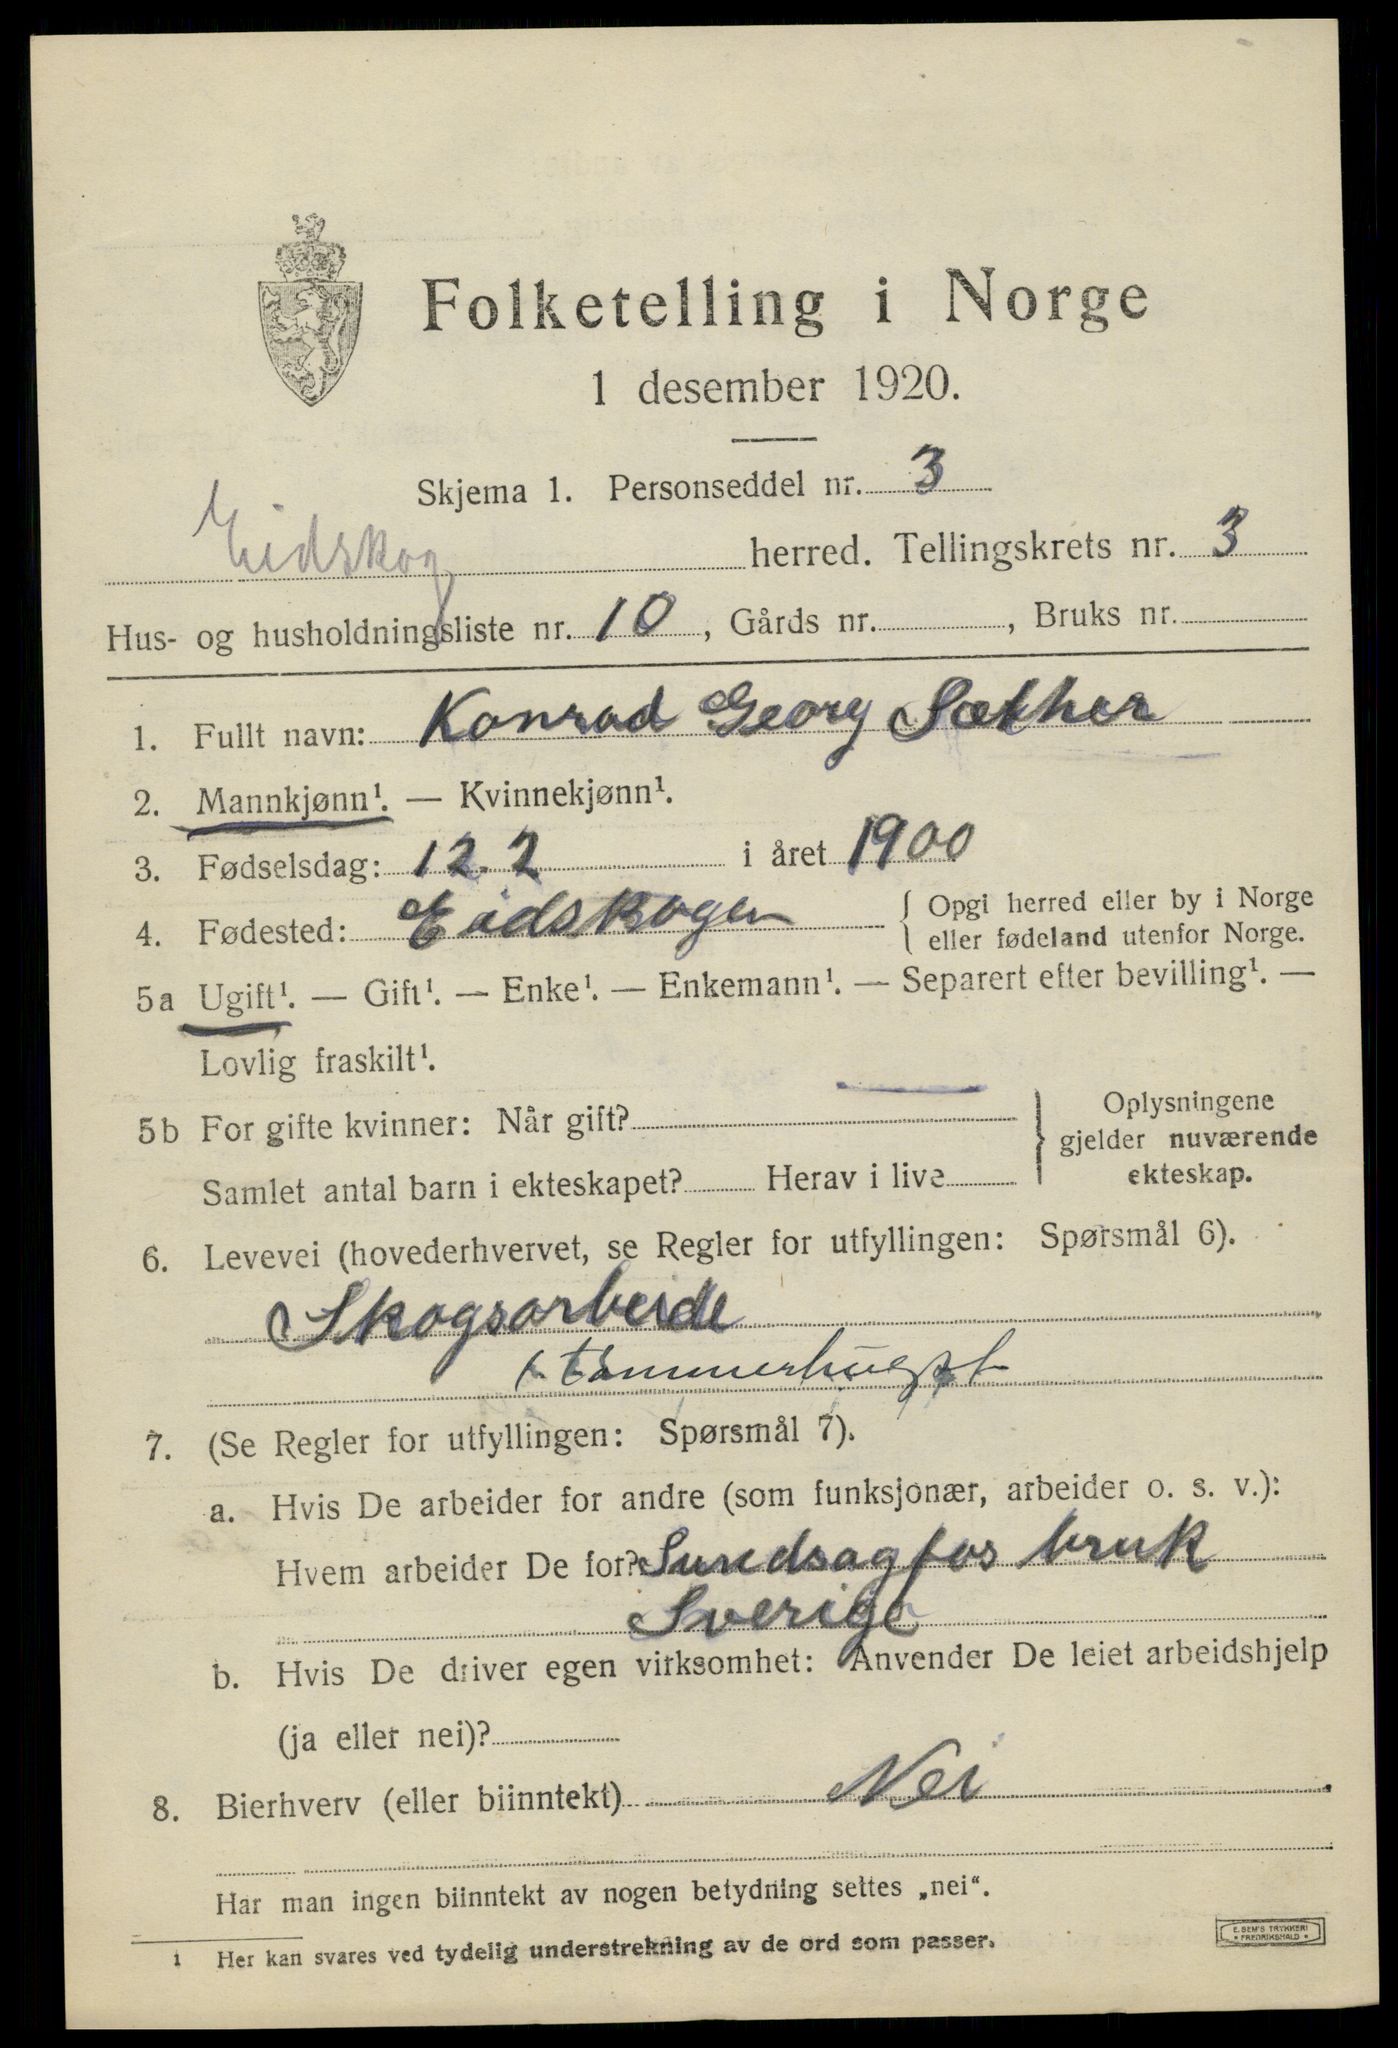 Folketelling i Norge
1 desember 1920.
Skjema 1. Personseddel nr. 3
Eidskog herred. Tellingskrets nr. 3
Hus- og husholdningsliste nr. 10, Gårds nr. , Bruks nr.
1. Fullt navn: Konrad Georg Sæther
2. Mannkjønn¹. — Kvinnekjønn¹.
3. Fødselsdag: 12.2 i året 1900
4. Fødested: Eidskogen { Opgi herred eller by i Norge
eller fødeland utenfor Norge.
5a Ugift¹. — Gift¹. — Enke¹. — Enkemann¹. — Separert efter bevilling¹. —
Lovlig fraskilt¹.
5b For gifte kvinner: Når gift? } Oplysningene
gjelder nuværende
ekteskap.
Samlet antal barn i ekteskapet? Herav i live
6. Levevei (hovederhvervet, se Regler for utfyllingen: Spørsmål 6).
Skogsarbeide
tømmerhugst
7. (Se Regler for utfyllingen: Spørsmål 7).
a. Hvis De arbeider for andre (som funksjonær, arbeider o. s. v.):
Hvem arbeider De for? Sundsagfos bruk
Sverige
b. Hvis De driver egen virksomhet: Anvender De leiet arbeidshjelp
(ja eller nei)?
8. Bierhverv (eller biinntekt) Nei
Har man ingen biinntekt av nogen betydning settes „nei“.
1 Her kan svares ved tydelig understrekning av de ord som passer.
E. SEM'S TRYKKERI
* FREDRIKSHALD *